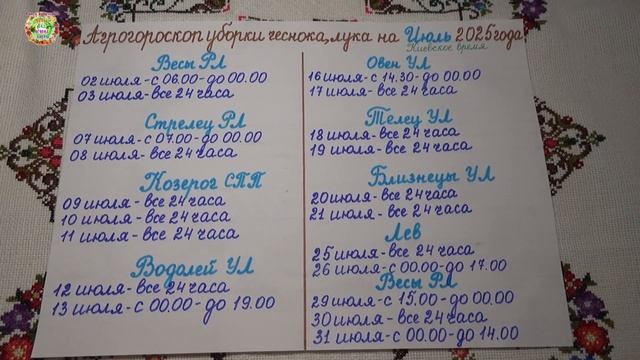 Агрогороскоп уборки чеснока, лука на Июль 2025 года
Киевское время
Весы РЛ
02 июля - с 06.00 - до 00.00
03 июля - все 24 часа
Стрелец РЛ
07 июля - с 07.00 - до 00.00
08 июля - все 24 часа
Козерог СПП
09 июля - все 24 часа
10 июля - все 24 часа
11 июля - все 24 часа
Водолей УЛ
12 июля - все 24 часа
13 июля - с 00.00 - до 19.00
Овен УЛ
16 июля - с 14.30 - до 00.00
17 июля - все 24 часа
Телец УЛ
18 июля - все 24 часа
19 июля - все 24 часа
Близнецы УЛ
20 июля - все 24 часа
21 июля - все 24 часа
Лев
25 июля - все 24 часа
26 июля - с 00.00 - до 17.00
Весы РЛ
29 июля - с 15.00 - до 00.00
30 июля - все 24 часа
31 июля - с 00.00 - до 14.00